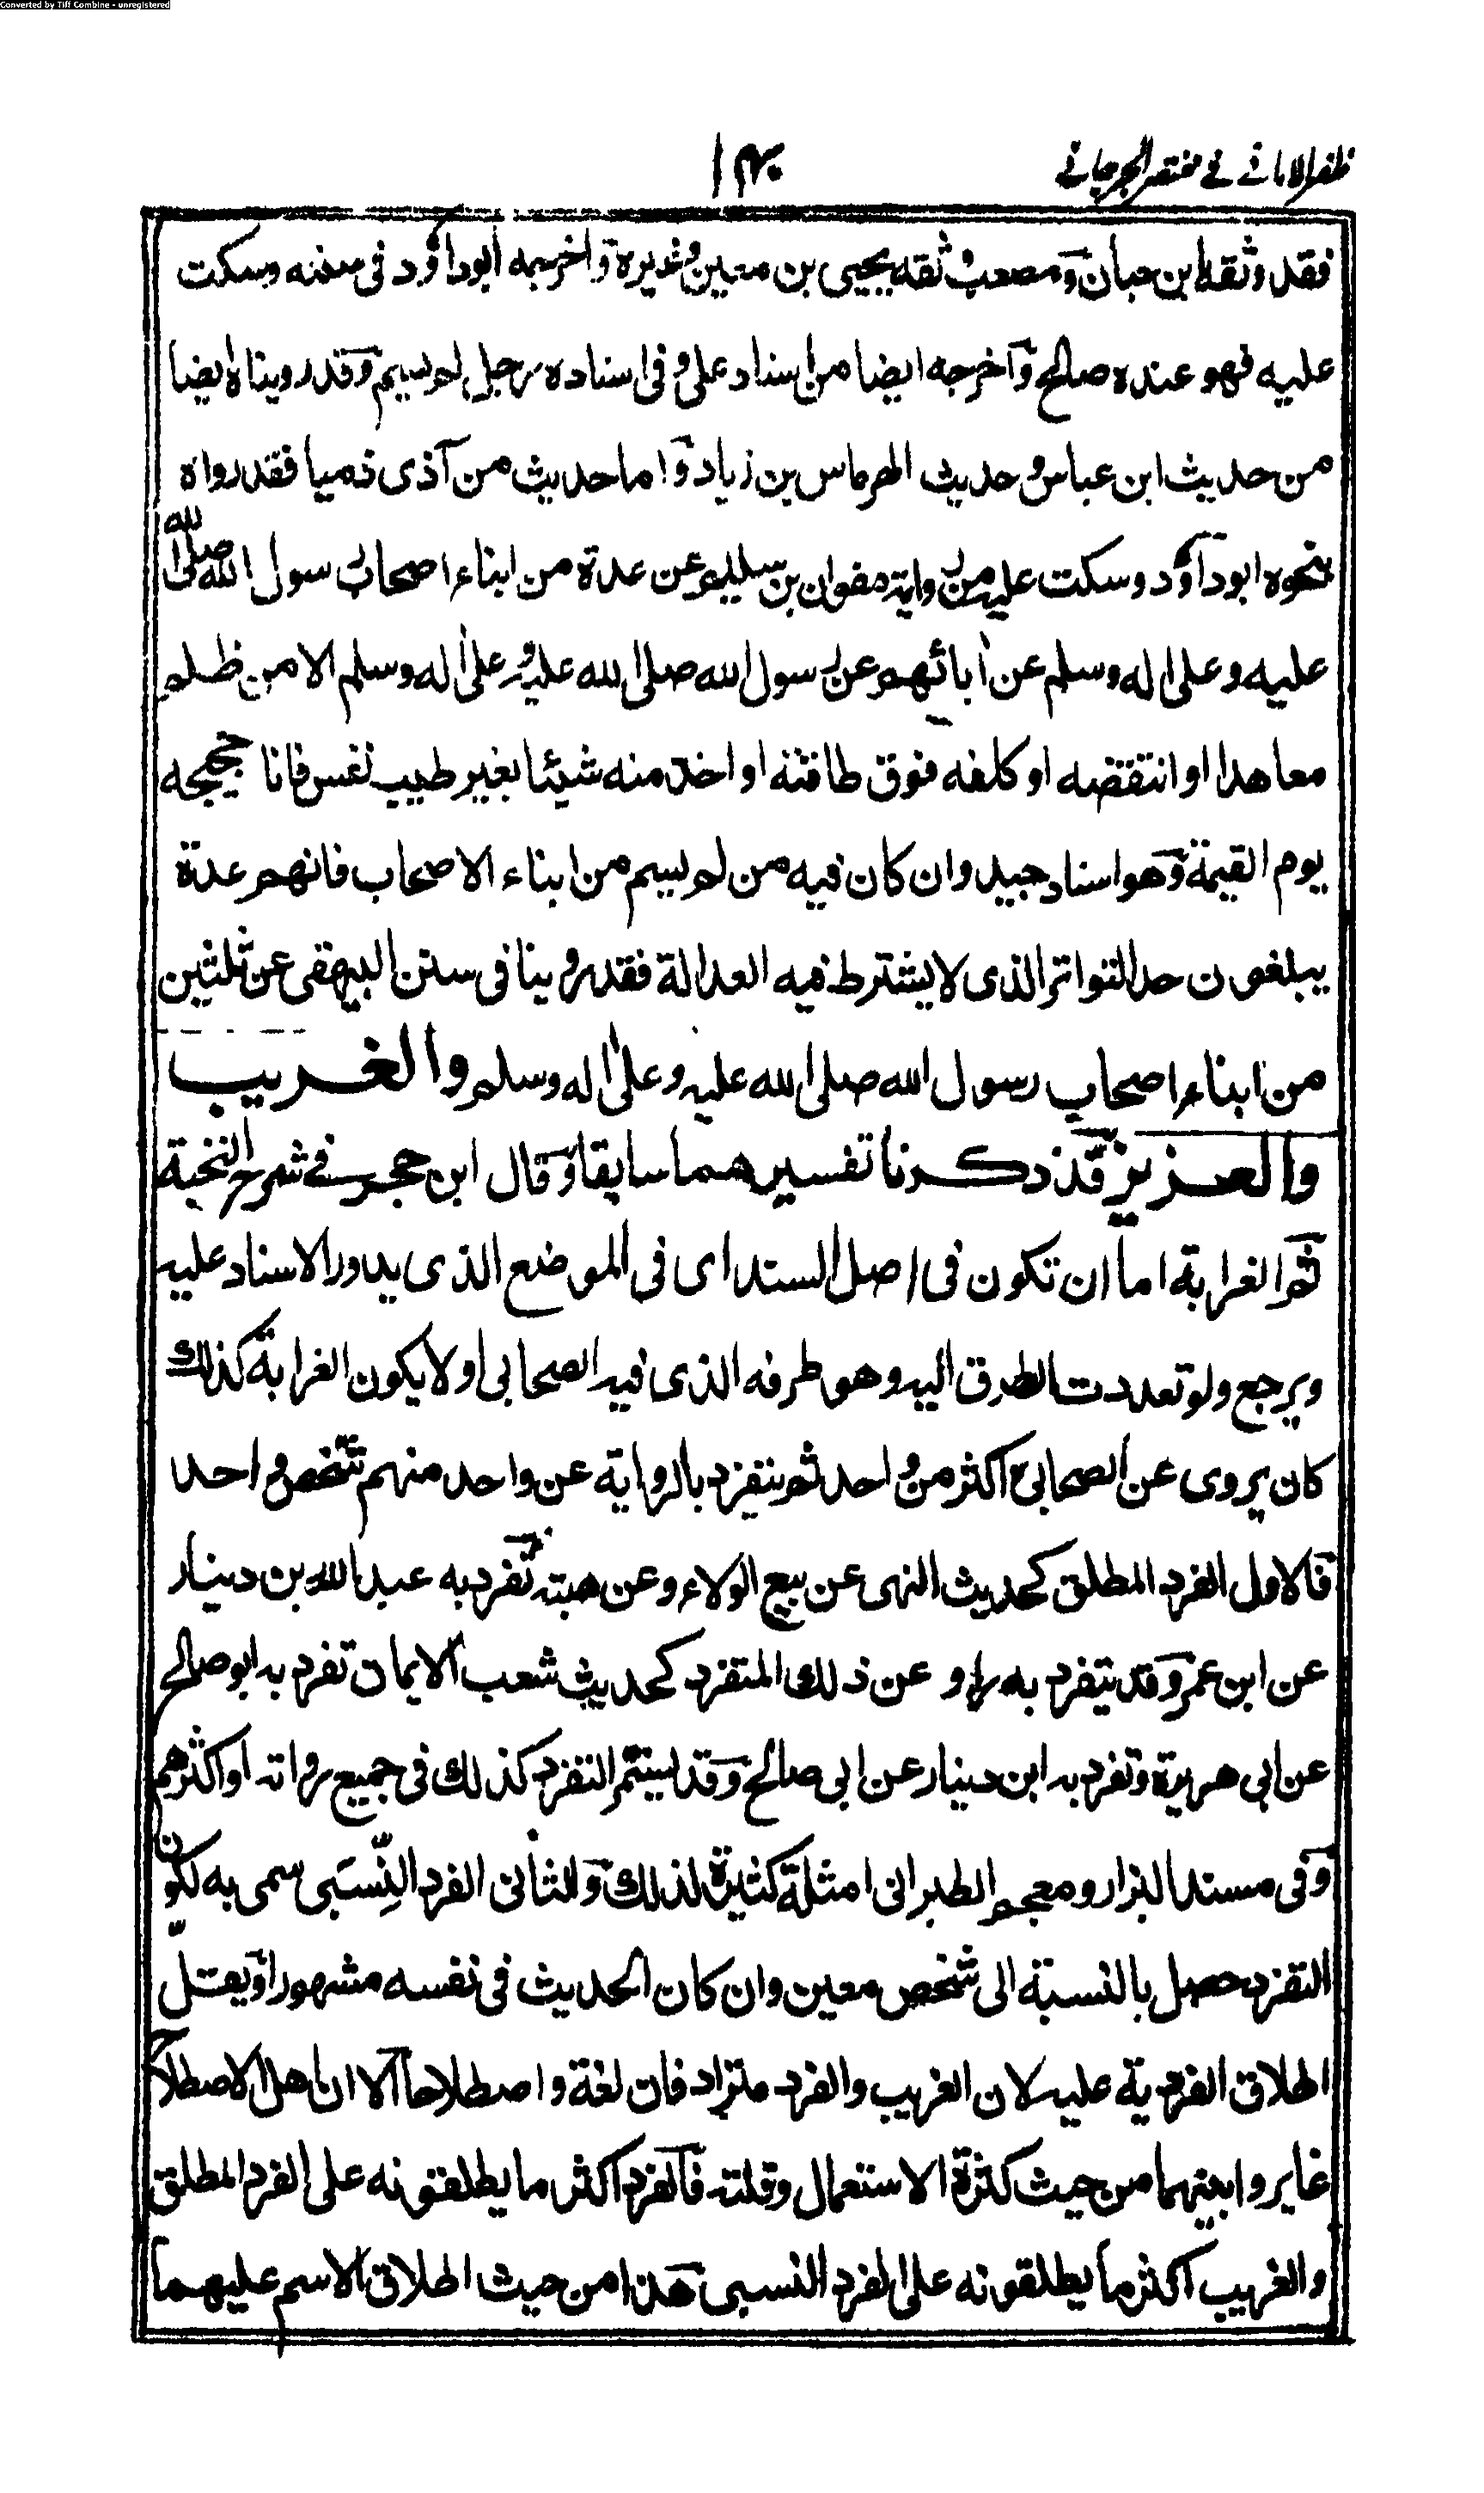 Converted by Tiff Combine - unregistered
ظفر الامانی فی مختصر الجرجانی
۱۴۰
فقد وثقه ابن حبان ومصعب وثقه يحيى بن معين وغيره واخرجه ابوداؤد فى سننه وسكت
عليه فهو عنده صالح وآخرجه ايضا من اسناد على وفى اسناده رجل لم يسم وقد رويناه ايضا
من حديث ابن عباس وحديث الهرماس بن زياد واما حديث من آذى ذميا فقد رواه
بنحوه ابوداؤد وسكت عليه من رواية صفوان بن سليم عن عدة من ابناء اصحاب رسول الله صلى الله
عليه وعلى اله وسلم عن أبائهم عن رسول الله صلى الله عليه وعلى اله وسلم الا من ظلم
معاهدا او انتقضه او كلفه فوق طاقته او اخذ منه شيئا بغير طيب نفس فانا حجيجه
يوم القيمة وهو اسناد جيد وان كان فيه من لم يسم من ابناء الاصحاب فانهم عدة
يبلغون حد التواتر الذى لا يشترط فيه العدالة فقد روينا فى سنن البيهقى عن ثلثين
من ابناء اصحاب رسول الله صلى الله عليه وعلى اله وسلم والغريب
والعزيز قد ذكرنا تفسيرهما سابقا وقال ابن حجر فى شرح النخبة
ثم الغرابة اما ان تكون فى اصل السند اى فى الموضع الذى يدور الاسناد عليه
ويرجع ولو تعددت الطرق اليه وهو طرفه الذى فيه الصحابى او لا يكون الغرابة كذلك
كان يروى عن الصحابى اكثر من واحد ثم يتفرد بالرواية عن واحد منهم شخص واحد
فالاول الفرد المطلق كحديث النهى عن بيع الولاء وعن هبته تفرد به عبد الله بن دينار
عن ابن عمر وقد يتفرد به راو عن ذلك المتفرد كحديث شعب الايمان تفرد به ابو صالح
عن ابى هريرة وتفرد به ابن دينار عن ابى صالح وقد يستمر التفرد كذلك فى جميع رواته او اكثرهم
وفى مسند البزار ومعجم الطبرانى امثلة كثيرة لذلك والثانى الفرد النسبى سمى به لكون
التفرد حصل بالنسبة الى شخص معين وان كان الحديث فى نفسه مشهورا ويقل
اطلاق الفردية عليه لان الغريب والفرد مترادفان لغة واصطلاحا الا ان اهل الاصطلاح
غايروا بينهما من حيث كثرة الاستعمال وقلته فالفرد اكثر ما يطلقونه على الفرد المطلق
والغريب اكثر ما يطلقونه على الفرد النسبى هذا من حيث اطلاق الاسم عليهما